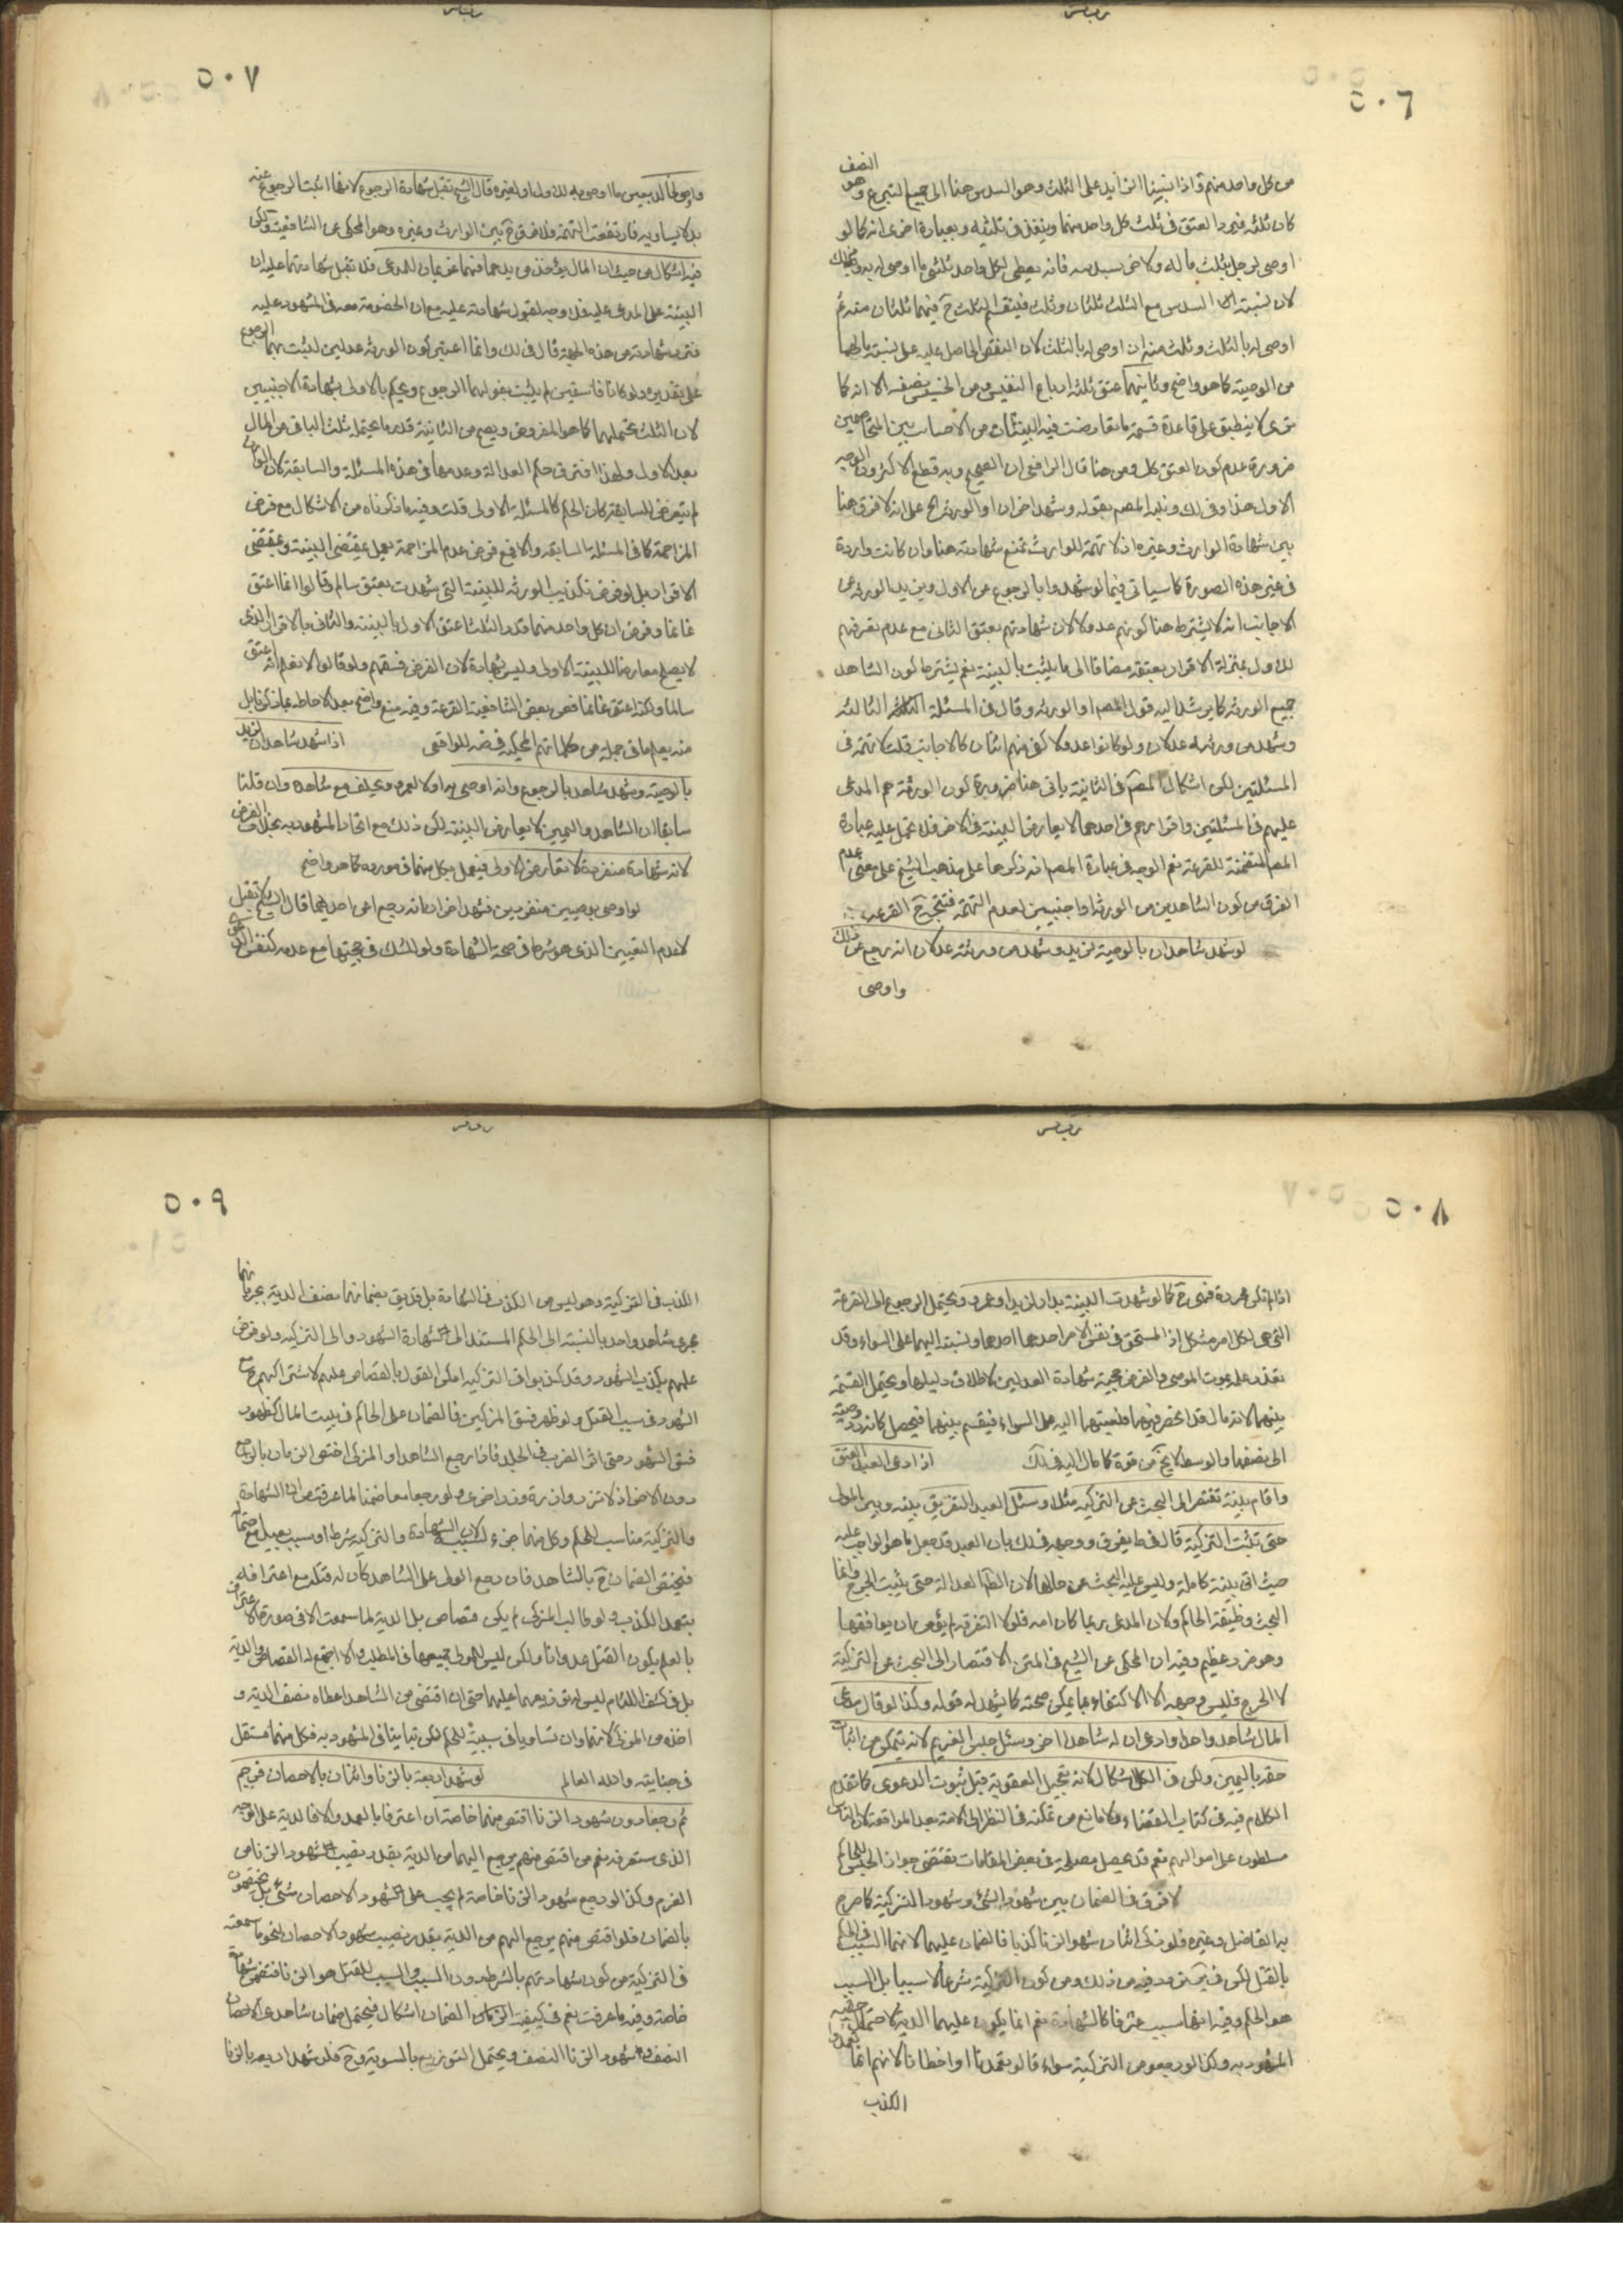 ٥٠٦
النصف
من كل واحد منهم واذا نسبنا الزايد على الثلث وهو السدس هنا الى جميع التبرع وهو
كان ثلثه فيرد العتق في ثلث كل واحد منهما وينفذ في ثلثيه وبعبارة اخرى انه كما لو
اوصى لرجل بثلث ماله ولاخر بسدسه فانه يعطى لكل واحد ثلثي ما اوصى له به وذلك
لان نسبته السدس مع الثلث ثلثان وثلث فينقسم الثلث ح فيهما ثلثان
اوصى له بالثلث وثلث منه ان اوصى له بالثلث لان النقص الحاصل عليه على نسبة مالهما
من الوصية كما هو واضح وثانيهما عتق ثلثه ارباع النفيس ومن الخسيس نصفه الا انه كما
ترى لا ينطبق على قاعدة قسمة ما تعارضت فيه البينتان من الاحباب بين المتخاصمين
ضرورة عدم كون العتق كل ومن هنا قال الرافعي ان الصحيح وبه قطع الاكثرون الوجه
الاول هذا وفي لك ونبه المصم بقوله وشهد اخران او الورثه الخ على انه لا فرق هنا
بين شهادة الوارث وغيره اذ لا تهمة للوارث تمنع شهادته هنا وان كانت واردة
في غير هذه الصورة كما سياتي فيما لو شهدوا بالرجوع عن الاول ويزيد الورثه عن
الاجانب انه لا يشترط هنا كونهم عدولا لان شهادتهم بعتق الثاني مع عدم تعرضهم
للاول بمنزلة الاقرار بعتقه مضافا الى ما يثبت بالبينة نعم يشترط كون الشاهد
جميع الورثه كما يرشد اليه قول المصم او الورثه وقال في المسئلة الثالثه
وشهد من ورثته عدلان ولو كانوا عدولا كفى منهم اثنان كالاجانب قلت لا تهمة في
المسئلتين لكن اشكال المصم في الثانية ياتى هنا ضرورة كون الورثة هم المدعى
عليهم في المسئلتين واقرارهم في احدهما لا يعارض البينة في الاخر فلا تحمل عليه عبارة
المصم المتضمنة للقرعة نعم الوجه في عبارة المصم انه ذكرها على مذهب الشيخ على معنى عدم
الفرق من كون الشاهدين من الورثه او اجنبيين لعدم التهمة فتتجه ح القرعه
لو شهد شاهدان بالوصية لزيد وشهد من ورثته عدلان انه رجع عن ذلك
واوصى
٥٠٧
واوصى لخالد بعين ما اوصى به للاول او لغيره قال الشيخ تقبل شهادة الرجوع لانهما اثبتا الرجوع عنه
بدلا يساويه فارتفعت التهمة فلا فرق ح بين الوارث وغيره وهو المحكي عن الشافعية ولكن
فيه اشكال من حيث ان المال يؤخذ من يدهما فهما غريمان للمدعى فلا تقبل شهادتهما عليه لان
البينة على المدعى عليه فلا وجه لقبول شهادته عليه مع ان الخصومة معه في المشهود عليه
فترد شهادته من هذه الجهة قال في لك وانما اعتبر كون الورثه عدلين لتثبت بهما الرجوع
على تقديره ولو كانا فاسقين لم يثبت بقولهما الرجوع ويحكم بالاولى بشهادة الاجنبيين
لان الثلث يحتملهما كما هو المفروض ويصح من الثانية قدر ما يحتمله ثلث الباقي من المال
بعد الاول ولهذا افترق حكم العدالة وعدمها في هذه المسئلة والسابقة لان الوارث
لم يتعرض للسابقة كان الحكم كالمسئلة الاولى قلت وفيه ما ذكرناه من الاشكال مع فرض
المزاحمة كما في المسئلة السابقة والا فمع فرض عدم المزاحمة يعمل بمقتضى البينة وبمقتضى
الاقرار بل لو فرض تكذيب الورثه للبينة التي شهدت بعتق سالم وقالوا انما اعتق
غانما وفرض ان كل واحد منهما قدر الثلث اعتق الاول بالبينة والثاني بالاقرار الذي
لا يصلح معارضا للبينة الاولى وليس شهادة لان الفرض فسقهم ولو قالوا لا نعلم انه اعتق
سالما ولكنه اعتق غانما فعن بعض الشافعية القرعة وفيه منع واضح بعد الاحاطة بما ذكرنا بل
منه يعلم ما في جملة من كلماتهم المحكيه في ضه للواقعى اذا شهد شاهدان لزيد
بالوصية وشهد شاهد بالرجوع وانه اوصى بها اولا لعمرو يحلف مع شاهده وان قلنا
سابقا ان الشاهد واليمين لا يعارض البينة لكن ذلك مع اتحاد المشهود به بخلاف الفرض
لانه شهادة منفردة لا تعارض الاولى فيعمل بكل منهما في مورده كما هو واضح
لو اوصى بوصيتين منفردتين فشهد اخران انه رجع عن احديهما قال الشيخ لا تقبل
لعدم التعيين الذي هو شرط في صحة الشهادة ولو للشك في حجيتها مع عدمه
٥٠٨
اذا لم تكن مجردة فهى ح كما لو شهدت البينة بدار لزيد او عمرو ويحتمل الرجوع الى القرعة
التي هى لكل امر مشكل اذ المستحق في نفس الامر احدهما ونسبته اليهما على السواء وقد
تعذر علمه بموت الموصى والفرض حجية شهادة العدلين لاطلاق دليلها ويحتمل القسمة
بينهما لانه مال قد انحصر فيهما ونسبتهما اليه على السواء فيقسم بينهما فيحصل كانه رد وصيته
الى نصفها والوسط لا يخ من قوة كما مال اليه في لك اذا ادعى العبد العتق
واقام بينة تفتقر الى البحث عن التزكيه مثلا وسئل العبد التفريق بينه وبين المولى
حتى تثبت التزكية قال في ط يفرق ووجهه في لك بان العبد قد فعل ما هو الواجب عليه
حيث اتى ببينة كاملة وليس عليه البحث عن حالها لان الظ العدالة حتى يثبت الجرح وانما
البحث وظيفة الحاكم ولان المدعى ربما كان امه فلولا التفرقة لم يؤمن ان يواقعها
وهو ضرر عظيم وفيه ان المحكى عن الشيخ في المتن الافتقار الى البحث عن التزكية
لا الجرح فليس وجهه الا الاكتفاء بما يمكن صحته كما يشهد له قوله وكذا لو قال مدعى
المال شاهدا واحدا وادعى ان له شاهدا اخر وسئل حبس الغريم لانه يتمكن من اثبات
حقه باليمين ولكن في الكل اشكال لانه تعجيل العقوبة قبل ثبوت الدعوى كما تقدم
الكلام فيه في كتاب القضاء ولا مانع من تمكنه في النظر الى الامة بعد المواقعة لان الناس
مسلطون على اموالهم نعم قد يحصل مصلحة في بعض المقامات تقتضى جواز الحبس للحاكم
لا فرق في الضمان بين شهود الشئ وشهود التزكية كما صرح
به الفاضل وغيره فلو زكى اثنان شهود الزنا كذبا فالضمان عليهما لانهما السبب في الحكم
بالقتل لكن في ير تردد فيه من ذلك ومن كون التزكية شرطا لا سببا بل السبب
هو الحكم وفيه انها سبب عرفا كالشهادة نعم انما يكون عليهما الدية لاحتمال حقيه
المشهود به وكذا لو رجعوا من التزكية سواء قالوا تعمدنا او اخطانا لانهم انما تعمدوا
الكذب
٥٠٩
الكذب في التزكية وهو ليس من الكذب في الشهادة بل قد يق بضمانهما نصف الدية بجريانهما
مجرى شاهد واحد بالنسبة الى الحكم المستند الى شهادة الشهود والى التزكيه ولو فرض
علمهم بكذب الشهود وقد كذبوا في التزكيه امكن القول بالقصاص عليهم لاشتراكهم مع
الشهود في سبب القتل ولو ظهر فسق المزكيين فالضمان على الحاكم في بيت المال كظهور
فسق الشهود حتى اثر الضرب في الجلد فاذا رجع الشاهد او المزكى اختص الضمان بالراجع
دون الاخر اذ لا تزر وازرة وزر اخرى ولو رجعا معا ضمنا لما عرفت من ان الشهادة
والتزكية مناسب للحكم وكل منهما جزء لسبب الشهادة والتزكية شرط او سبب بعيد
فيختص الضمان ح بالشاهد فان رجع الولى على الشاهد كان له قتله مع اعترافه
بتعمد الكذب ولو طالب المزكى لم يكن قصاص بل الدية لما سمعت الا في صورة الاعتراف
بالعلم بكون القتل عدوانا ولكن ليس للولى جميعهما في المطلب والا اجتمع له القصاص والدية
بل في كشف اللثام ليس له توزيعهما عليهما حتى ان اقتص من الشاهد اعطاه نصف الدية و
اخذه من المزكى لانهما وان تساويا في سببية للحكم لكن تباينا في المشهود به فكل منهما مستقل
في جنايته والله العالم لو شهد اربعة بالزنا واثنان بالاحصان فرجم
ثم رجعا دون شهود الزنا اقتص منهما خاصة ان اعترفا بالعمد والا فالدية على الوجه
الذي ستعرفه نعم من اقتص منهم يرجع اليهما من الدية بقدر نصيب شهود الزنا من
الغرم وكذا لو رجع شهود الزنا خاصة لم يجب على شهود الاحصان شئ بل يختصون
بالضمان فلو اقتص منهم يرجع اليهم من الدية بقدر نصيب شهود الاحصان لنحو ما سمعته
في التزكية من كون شهادتهم بالشرط دون السبب والسبب للقتل هو الزنا فتختص شهادته
خاصة وفيه ما عرفت نعم في كيفية الضمان اشكال فيحتمل ضمان شاهدى الاحصان
النصف وشهود الزنا النصف ويحتمل التوزيع بالسوية وح فلو شهد اربعة بالزنا